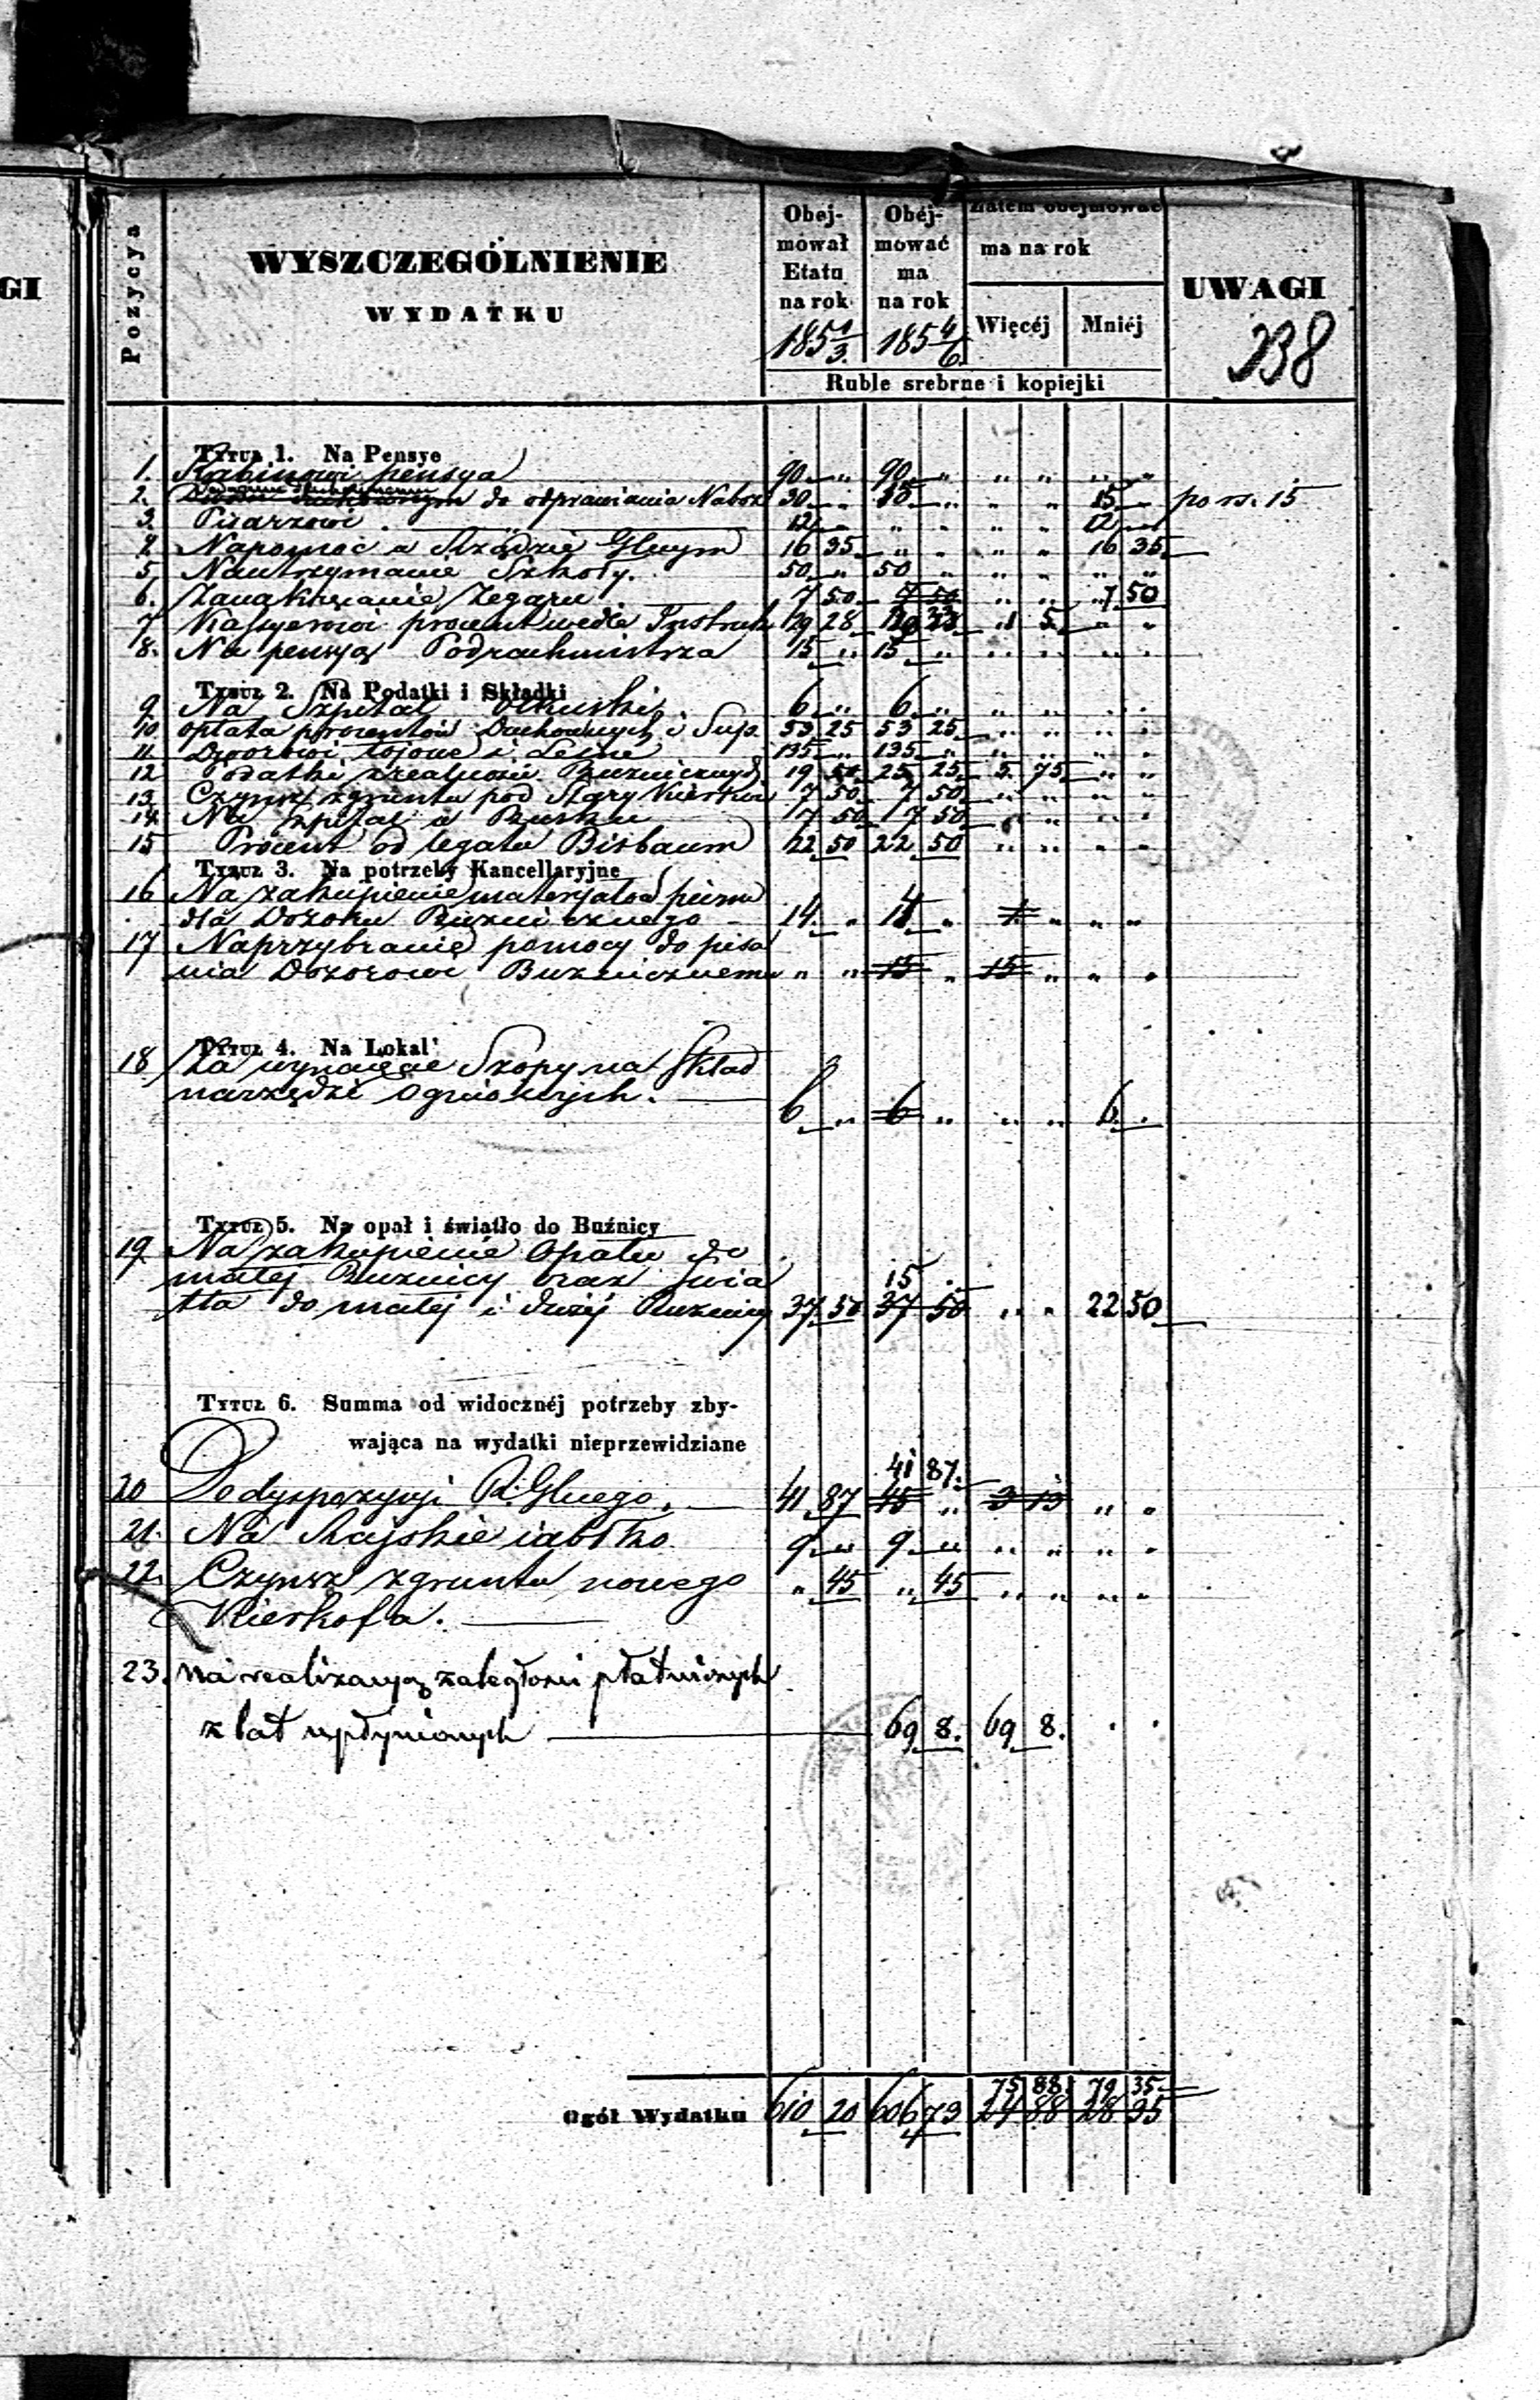 GI
Pozycya
WYSZCZEGÓLNIENIE
WYDATKU
Obej-
mował
Etatu
na rok
185 1/3.
Obéj-
mować
ma
na rok
185 4/6
Zatem obejmować
ma na rok
Więcéj
Mniéj
UWAGI
338
Ruble srebrne i kopiejki
Tytuł 1. Na Pensye
1. Rabinowi pensya 90 " 90 " " " " "
2. do odprawiania Naboż 30 " 15 " " " 15 " po rs. 15
3. Pisarzowi 12 " " " " " 12 "
4. Na pomoc w Rządzie Głnym 16 35 " " " " 16 35
5 Na utrzymanie Szkoły. 50 " 50 " " " " "
6. Za nakręcanie Zegaru 7 50 7 50 " " 7 50
7 Kassyerowi procent wedle Instruk 129 28 " "
8. Na pensyą Podrachmistrza 15 " 15 " " " " "
Tytuł 2. Na Podatki i Składki
9 Na Szpital Olkuski 6 " 6 " " " " "
10. opłata procentów Duchownych i Sup. 53 25 53 25 " " " "
11 Dworowi łojowe i Leśne 135 " 135 " " " " "
12 Podatki z realności Buznicznych 19 50 25 25 5 75 " "
13. Czynsz z gruntu pod Stary Kierkow 7 50 7 50 " " " "
14. Na szpital w Busku 17 50 17 50 " " " "
15 Procent od legatu Bisbaum 22 50 22 50 " " " "
Tytuł 3. Na potrzeby Kancellaryjne
16 Na zakupienie materjałow piśmu
dla Dozoru Buznicznego 14 " 14 " 1 " " "
17 Na przybranie pomocy do pisa
nia Dozorowi Buznicznemu " " 15 " 15 " " "
Tytuł 4. Na Lokal
18 Za wynajęcie Szopy na Skład
narzędzi ogniowych. 6 " 6 " " " 6 "
Tytuł 5. Na opał i światło do Buźnicy
19 Na zakupienie Opału do
małej Buznicy oraz świa
15
tła do małej i dużej Buznicy 37 50 37 50 " " 22 50
Tytuł 6. Summa od widocznéj potrzeby zby-
wająca na wydatki nieprzewidziane
41 87.
20 Do dyspozycyi R. Głnego. 41 87 45 " 3 13 " "
21. Na Rajskie iabłko 9 " 9 " " " " "
22. Czynsz z gruntu nowego " 45 " 45 " " " "
Kierkofa.
23. na realizacyą zaległości płatniczych
z lat upłynionych 69 8. 69 8. " "
75 88. 79 35.
Ogół Wydatku 610 20 606 73 24 88 28 35